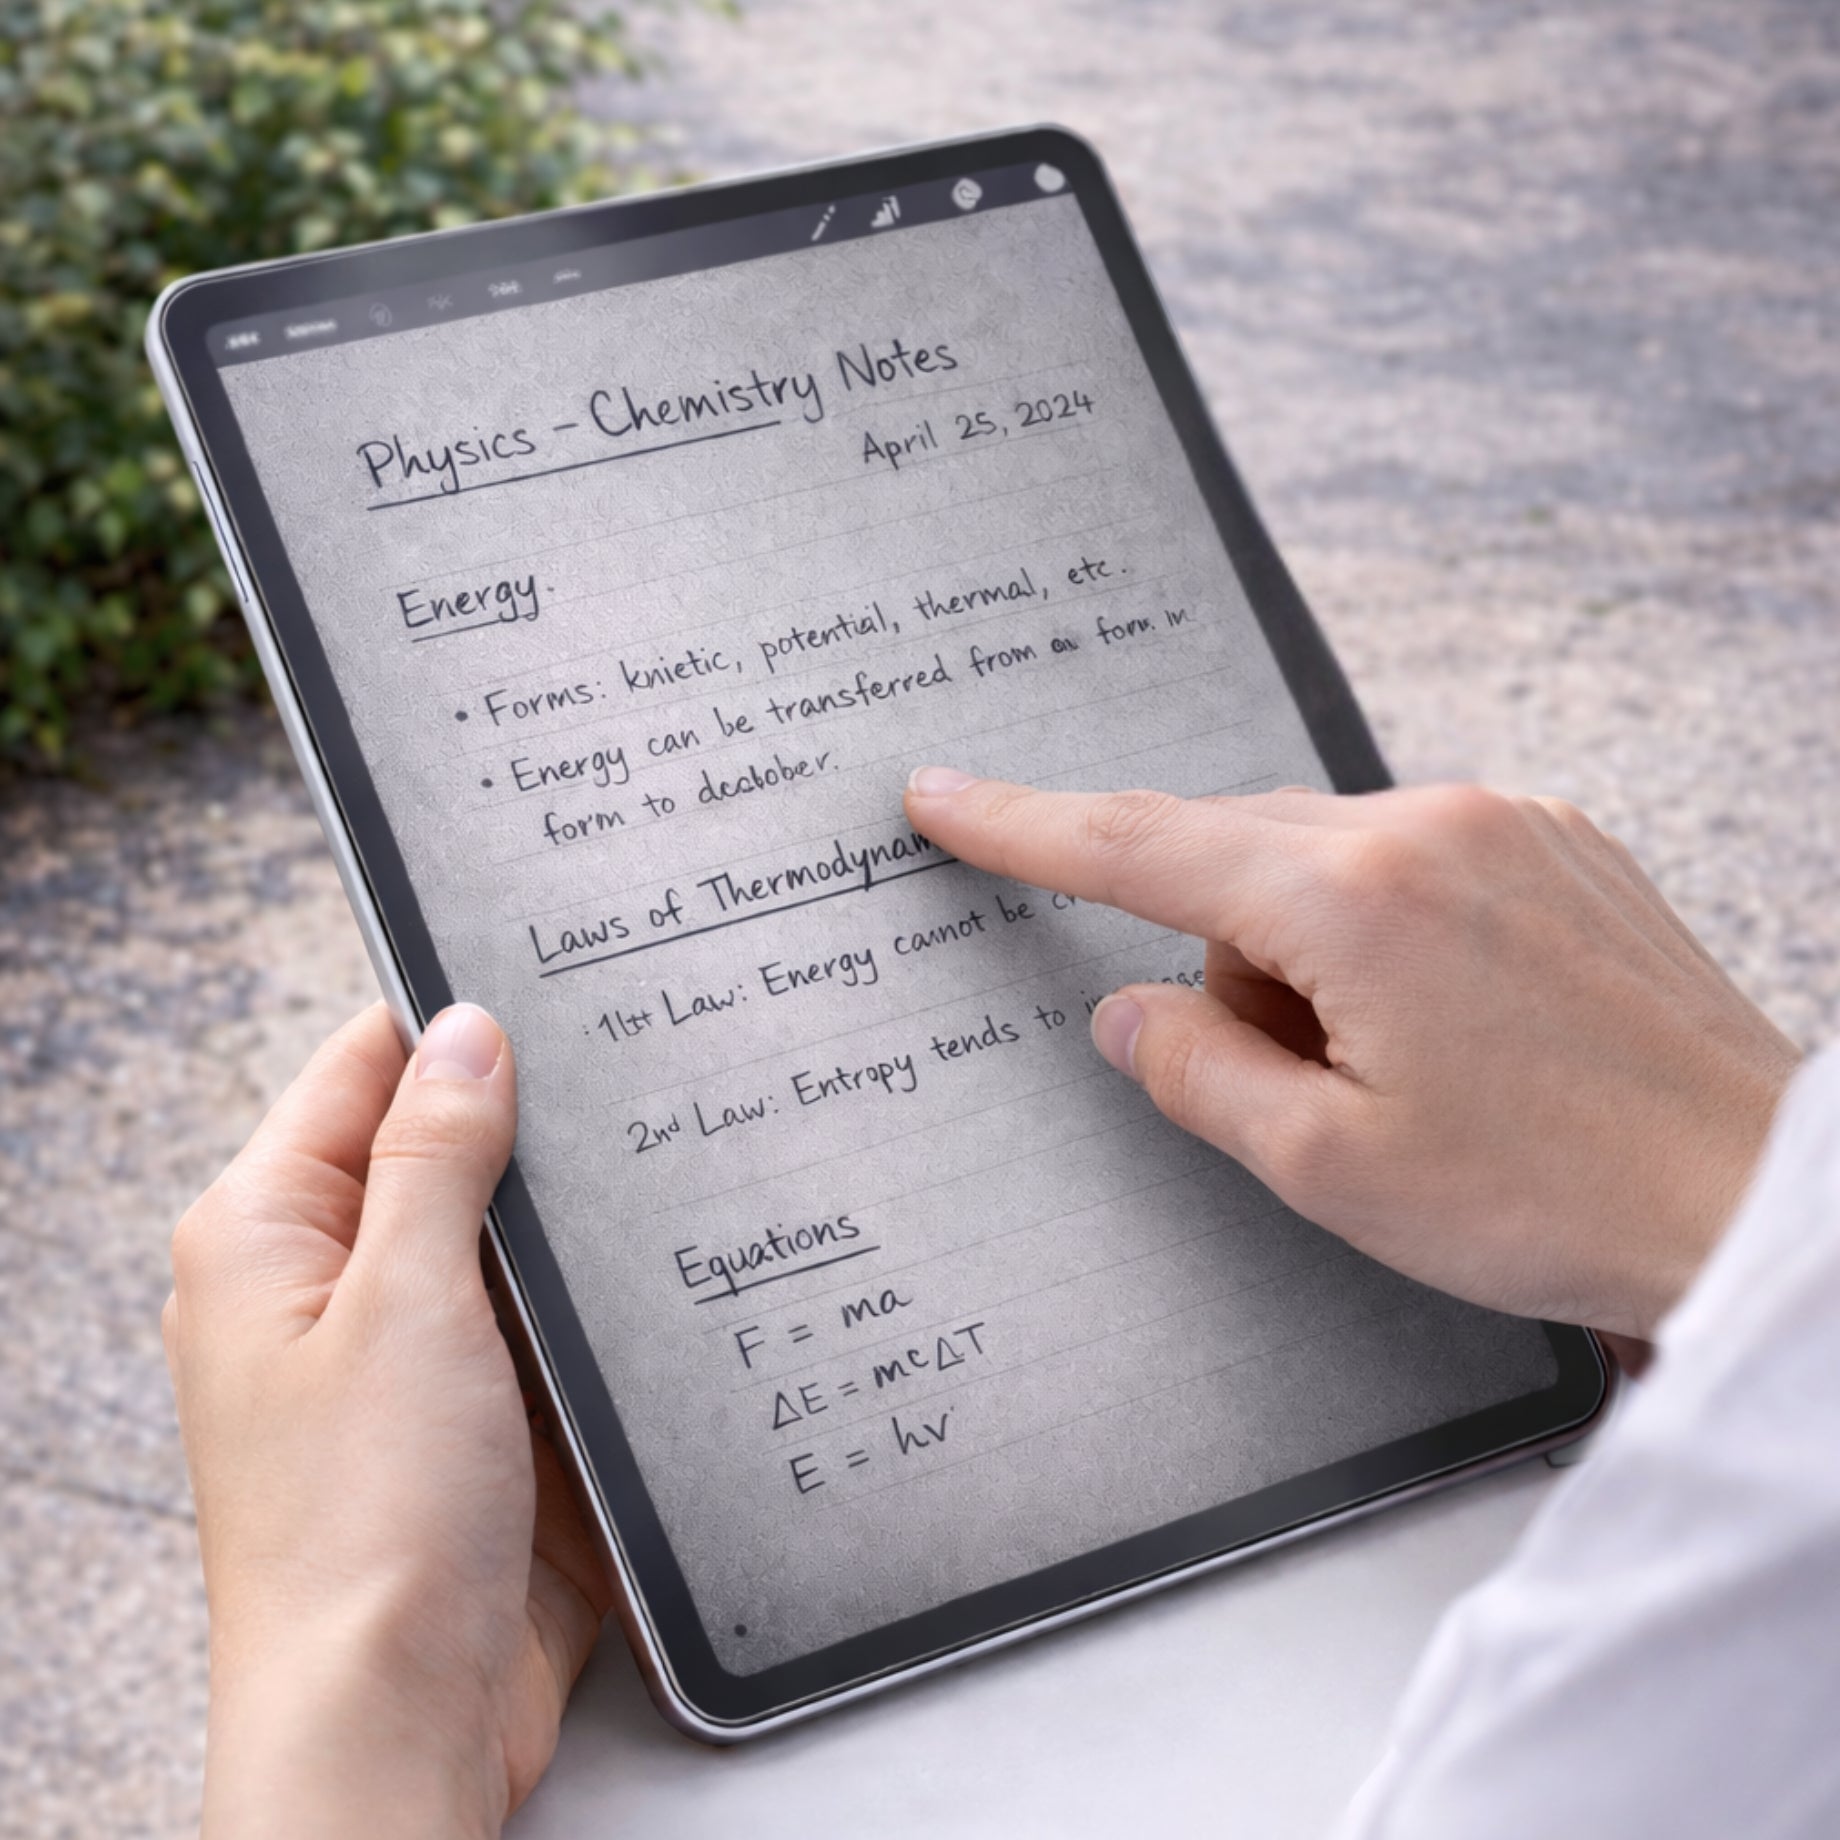 Physics - Chemistry Notes
April 25, 2024
Energy.
• Forms: knietic, potential, thermal, etc.
• Energy can be transferred from a form in
form to
Laws of Thermodynam
Law: Energy cannot be
2nd Law: Entropy tends to
Equations
F = ma
ΔE = mcΔT
E = hv